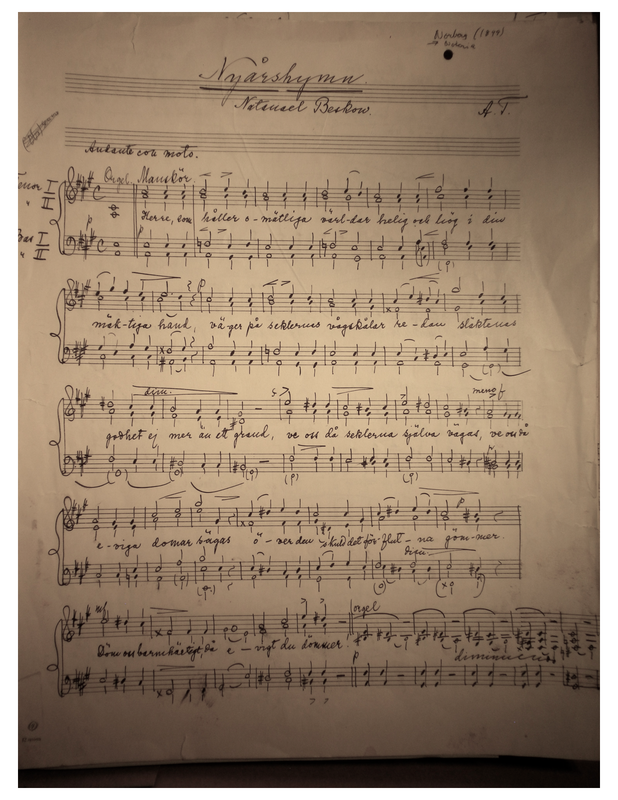 Norberg (1899)
Nyårshymn.
Natanael Beskow.
A. T.
Andante con moto.
Tenor I
" II
Bas I
" II
Orgel. Manskör
p
Herre, som håller o-mätliga värl-dar helig och hög i din
(p)
p
mäk-tiga hand, väger på seklernas vågskålar re-dan släktenas
(p) (p)
dim. meno f
godhet ej mer än ett grand, ve oss då seklerna själva vägas, ve oss då
(p) (p) (p)
p
e-viga domar sägas ö-ver den skuld det för-flut-na gömmer
dim.
(p) (p)
mf orgel
Döm oss barmhärtigt, då e-vigt du dömmer
diminuendo
p